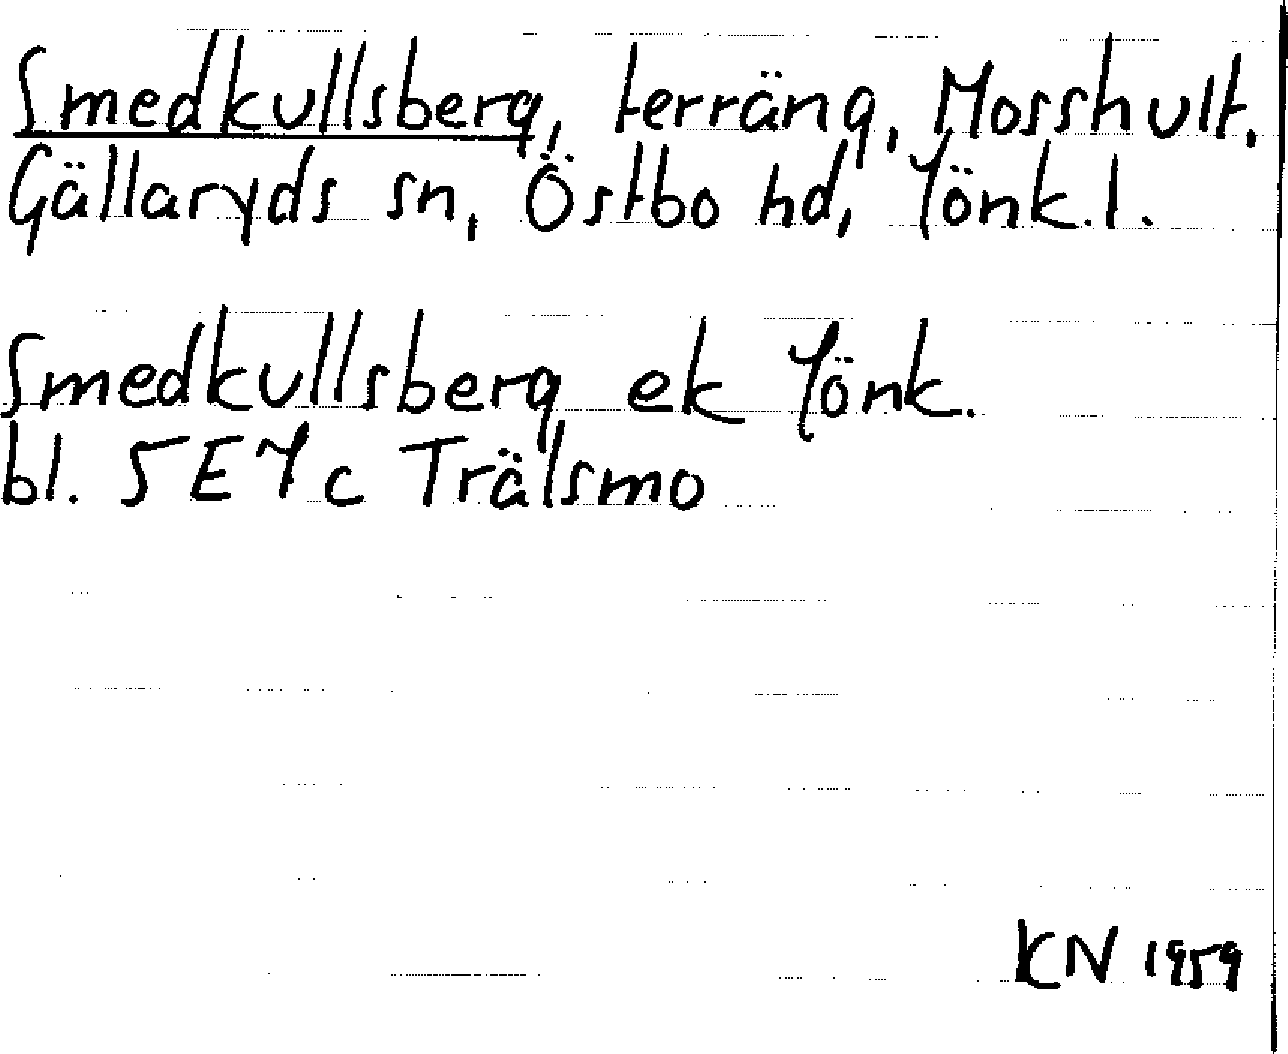 Smedkullsberg, terräng, Mosshult,
Gällaryds sn, Östbo hd, Jönk.l.
Smedkullsberg ek Jönk.
bl. 5E7c Trälsmo
KN 1959